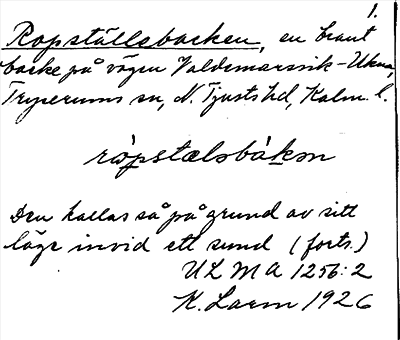 1.
Ropställsbacken, en brant
backe på vägen Valdemarsvik-Ukna,
Tryserums sn, N. Tjusts hd, Kalm. l.
röpstælsbákən
Den kallas så på grund av sitt
läge invid ett sund (forts.)
ULMA 1256:2
K. Laem 1926